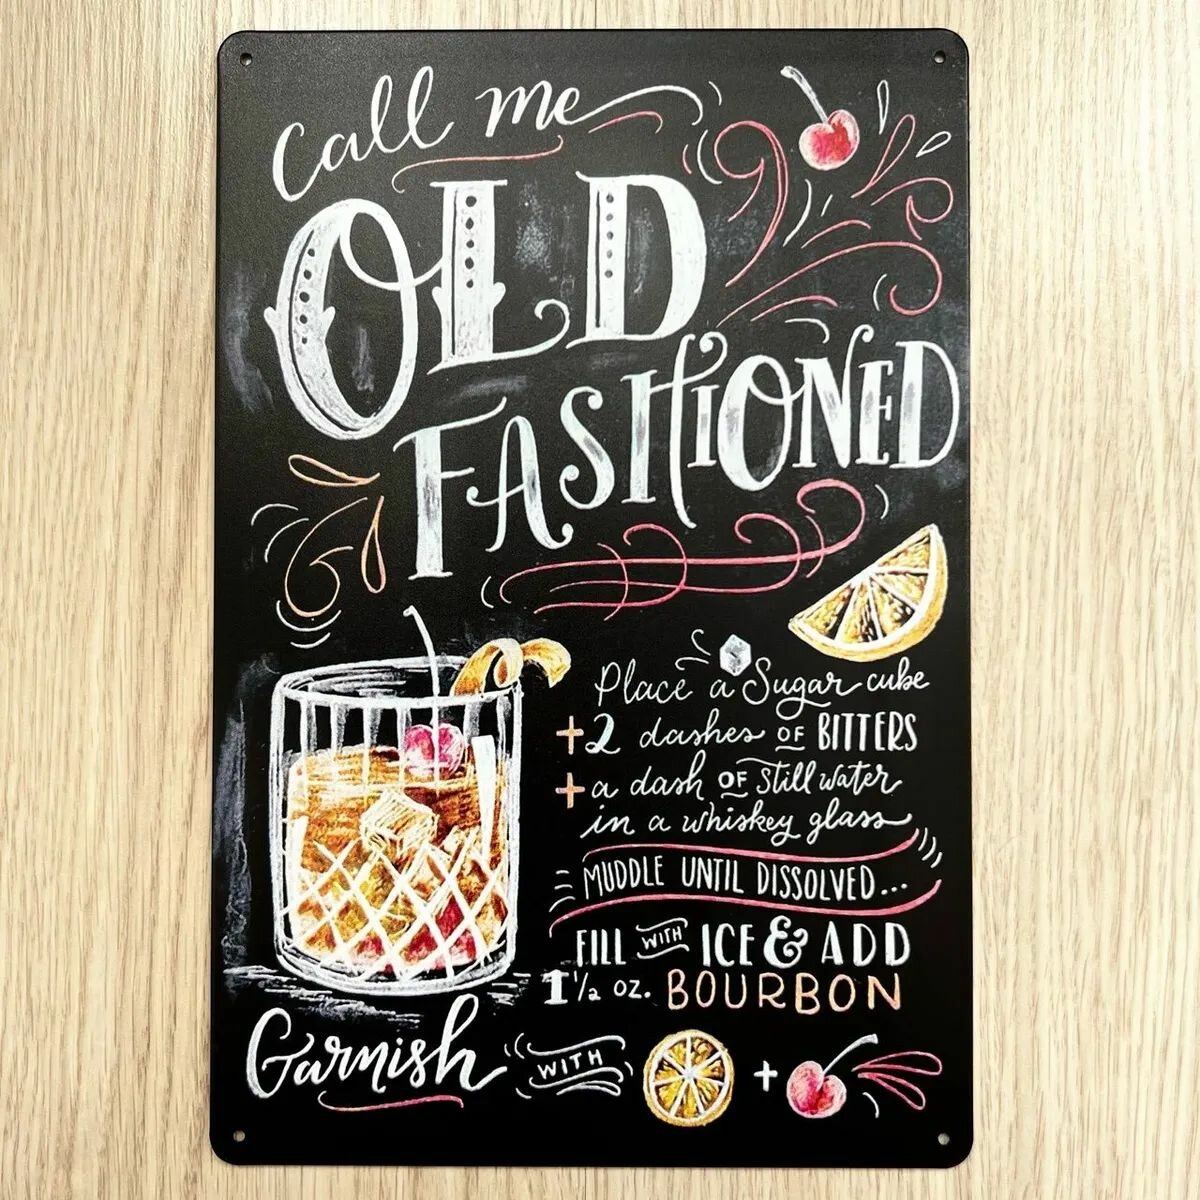 call me
OLD
FASHIONED
Place a Sugar cube
+2 dashes OF BITTERS
+a dash OF Still water
in a whiskey glass
MUDDLE UNTIL DISSOLVED...
FILL WITH ICE & ADD
1 1/2 oz. BOURBON
Garnish WITH +